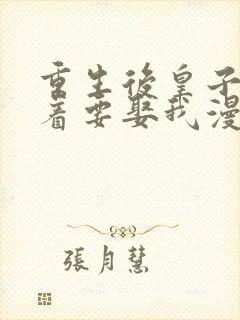 重生後皇子
着要娶我漫
張月慧